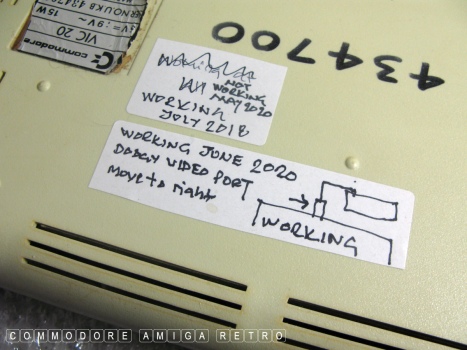 commodore
VIC 20
15W
434700
NOT
WORKING
MAY 2020
WORKING
JULY 2018
WORKING JUNE 2020
DODGY VIDEO PORT
MOVE to right
WORKING
COMMODORE AMIGA RETRO